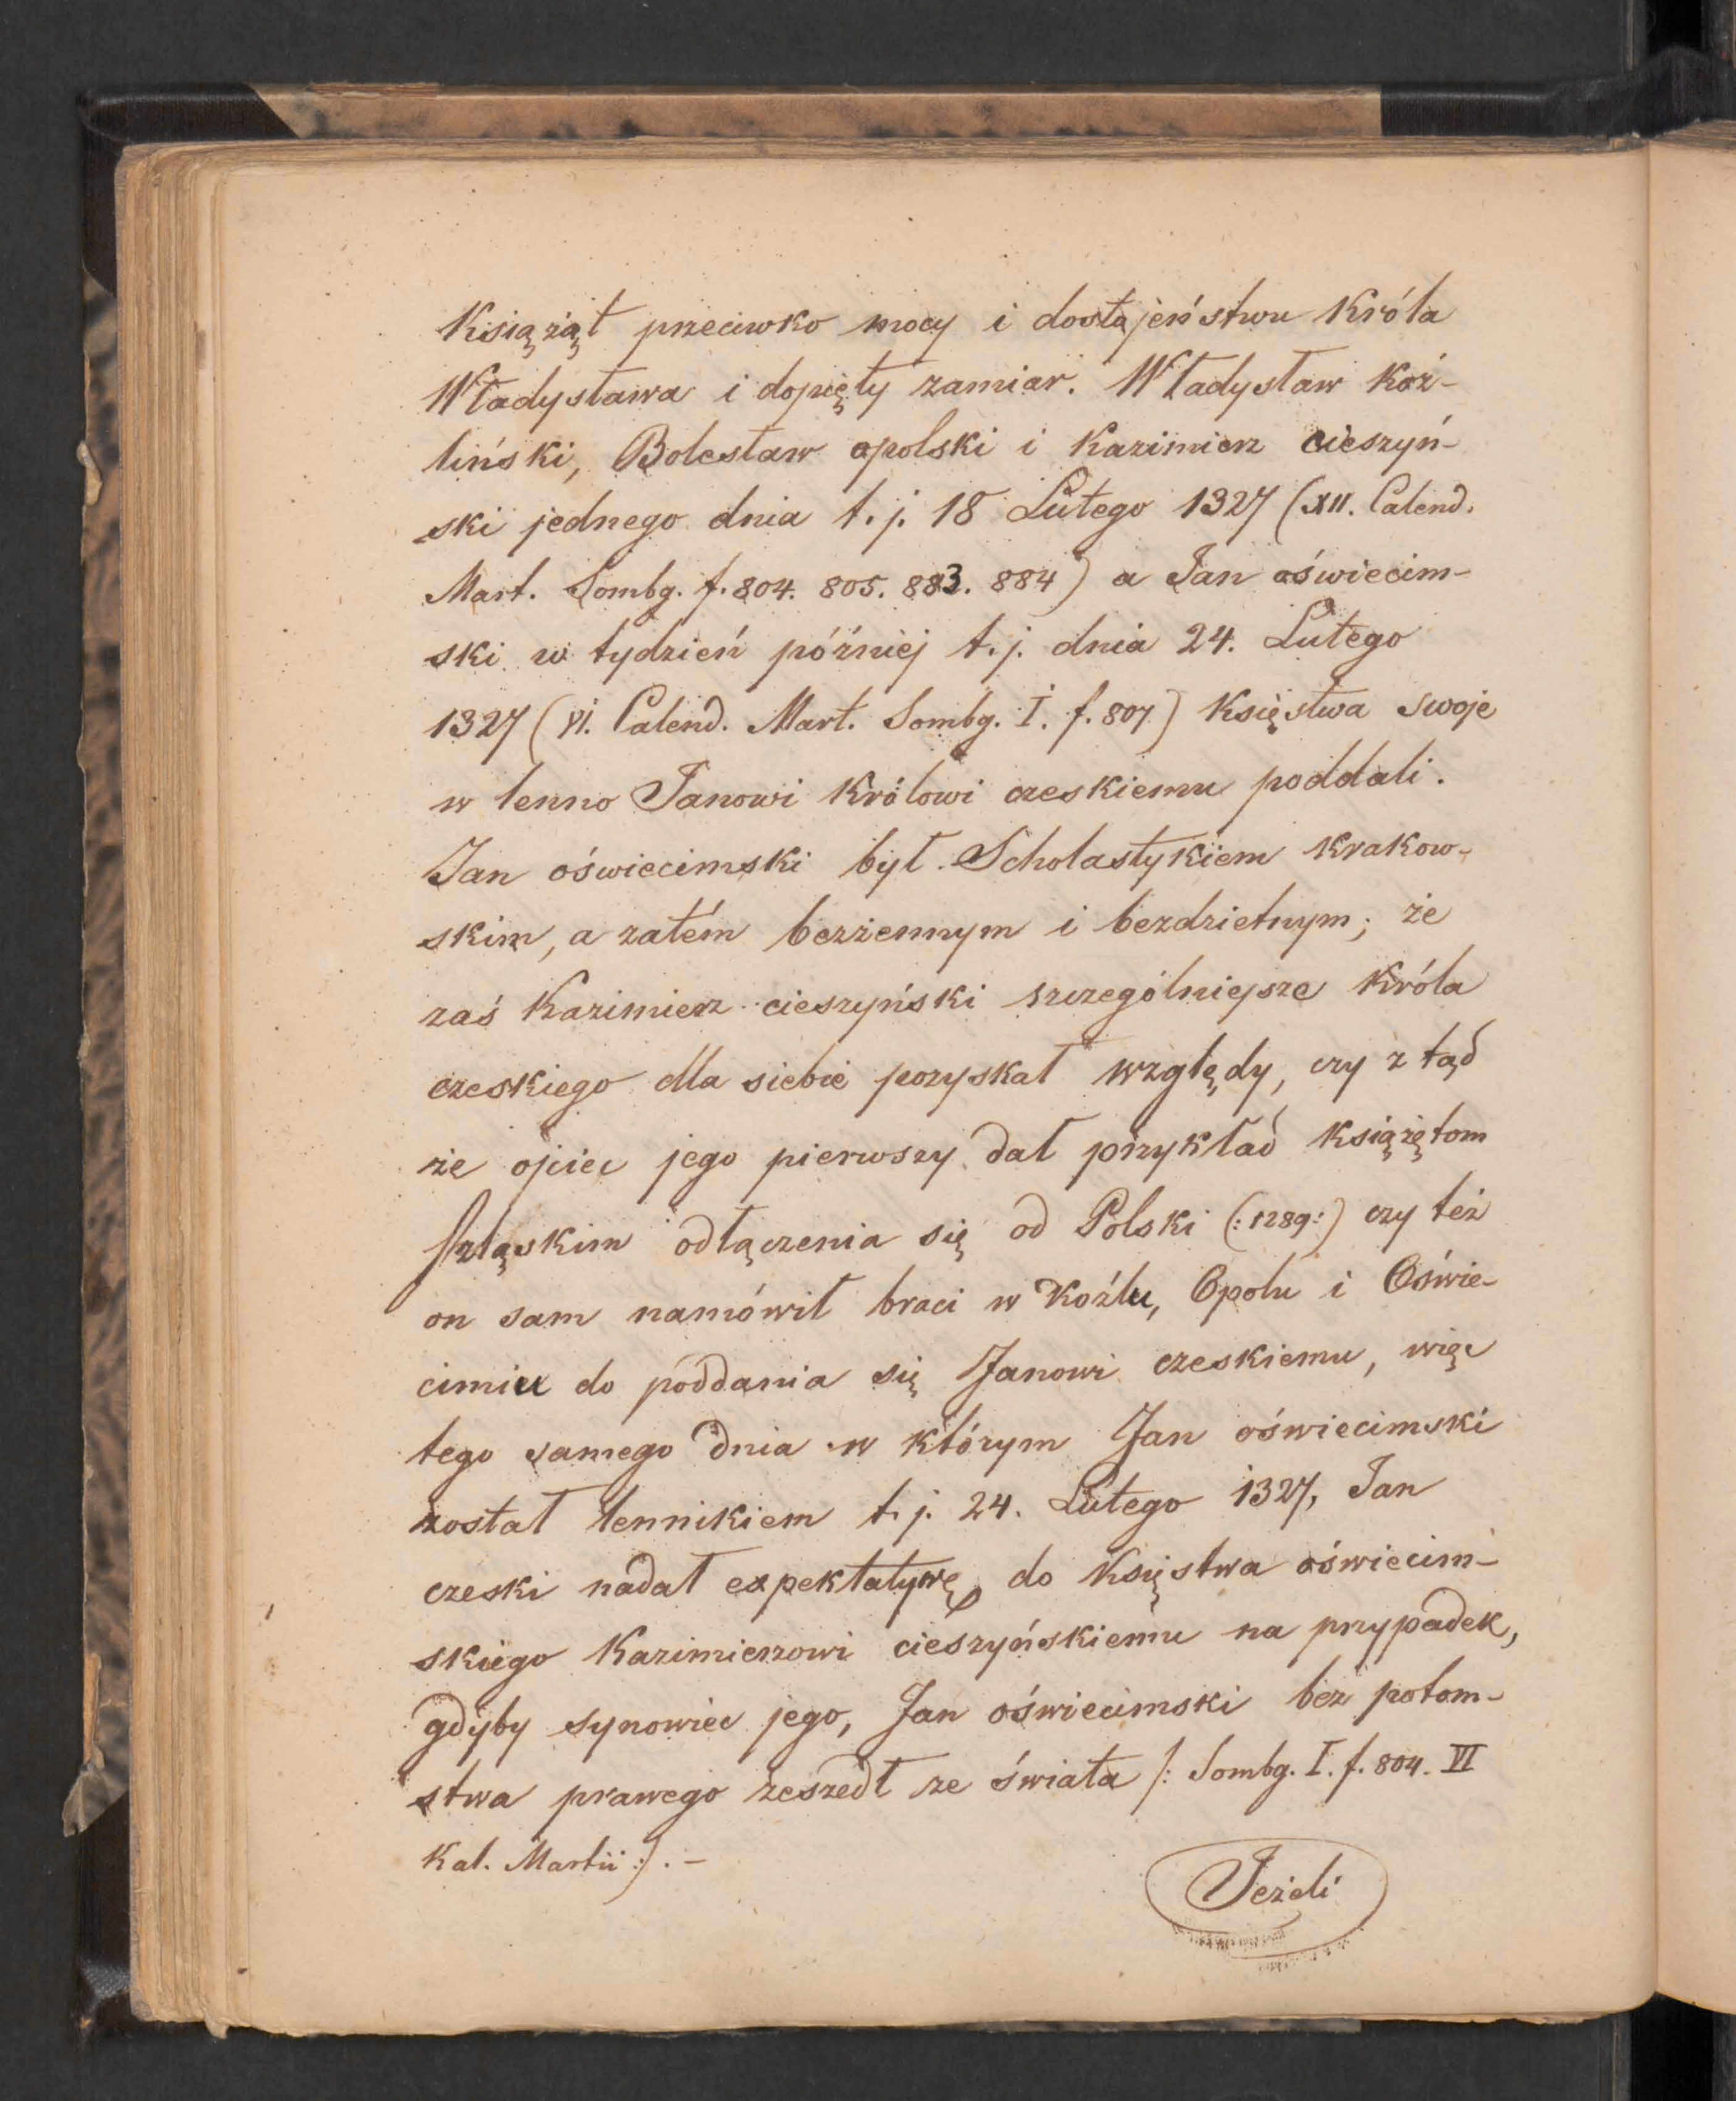 Książąt przeciwko mocy i dostojeństwu Króla
Władysława i dopięty zamiar. Władysław Koź-
liński, Bolesław opolski i Kazimierz cieszyń-
ski jednego dnia t. j. 18 Lutego 1327 (XII. Calend.
Mart. Sombg. f. 804. 805. 883. 884) a Jan oświecim-
ski w tydzień później t. j. dnia 24. Lutego
1327 (VI. Calend. Mart. Sombg. I. f. 807) Księstwa swoje
w lenno Janowi Królowi czeskiemu poddali.
Jan oświecimski był Scholastykiem Krakow-
skim, a zatém bezżennym i bezdzietnym; że
zaś Kazimierz cieszyński szczególniejsze Króla
czeskiego dla siebie pozyskał względy, czy z tąd
że ojciec jego pierwszy dał przykład Książętom
szląskim odłączenia się od Polski (:1289:) czy też
on sam namówił braci w Koźlu, Opolu i Oświe-
cimiu do poddania się Janowi czeskiemu, więc
tego samego dnia w którym Jan oświecimski
został lennikiem t. j. 24. Lutego 1327, Jan
czeski nadał expektatywę do Księstwa oświecim-
skiego Kazimierzowi cieszyńskiemu na przypadek,
gdyby synowiec jego, Jan oświecimski bez potom-
stwa prawego zeszedł ze świata /: Sombg. I. f. 804. VI
Kal. Martii :/. –
Jeżeli